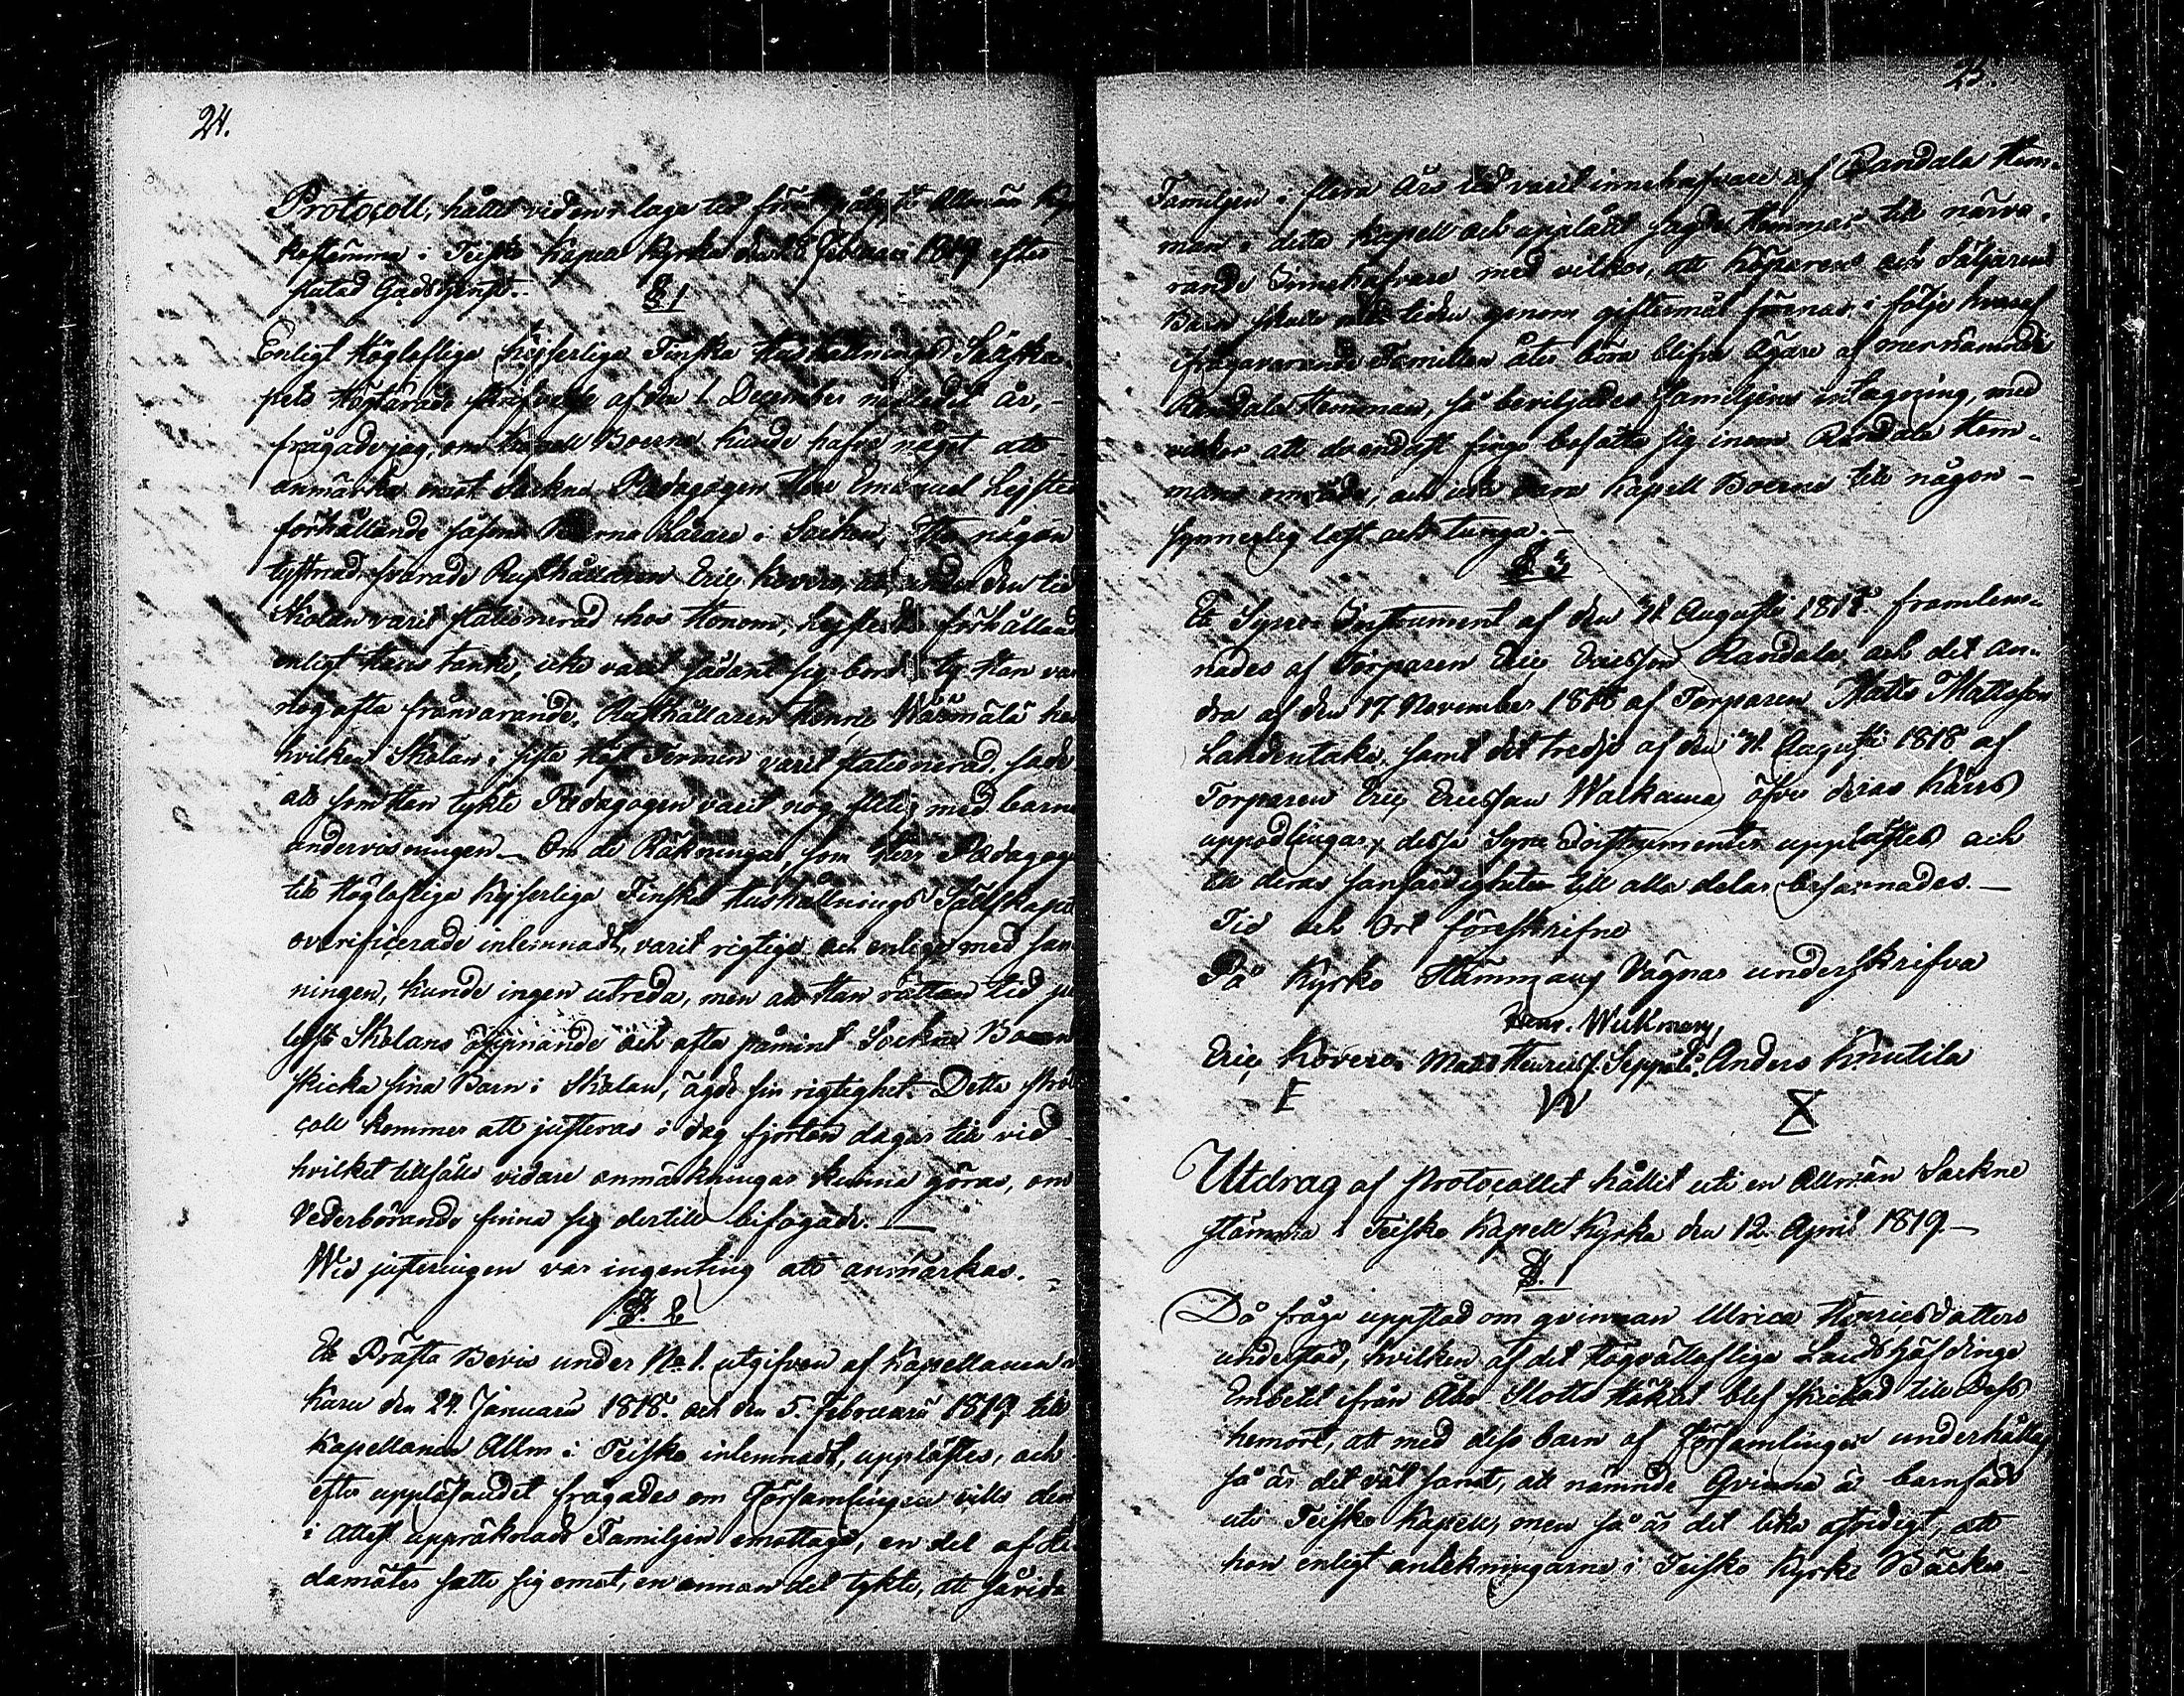 24.
Protocoll, hållit vid en laga till förut pålyst Allmän Kyr
kostämma i Teisko Kapell Kyrka den 28 Februari 1819 efter
slutad Gudstjenst.
§ 1
Enligt Högloflige Kejserlige Finska Hushållnings Sällska
pets Högtärade skrifvelse af den 1 December nästledit år,
frågade jag, om Kapell Boerne kunde hafva något att
anmärka emot Sockne Pædagogen Herr Emanuel Lejsters
förhållande såsom Barna Lärare i Socken, Efter någon
tystnad svarade Rusthållaren Eric Kovero, att under den tid
Skolan varit stationerad hos Honom, Lejsters förhålland
enligt Hans tanke, icke varit sådant sig bordt, ty Han var
nog ofta frånvarande. Rusthållaren Henric Wärmälä hos
hvilken Skolan i sista Höst Termin varit stationerad, sade
att som Han tykte Pædagogen varit nog flitig med barne
undervisningen. Om de Räkningar, som Herr Pædagog
till Högloflige Kejserliga Finska Hushållnings Sällskapet
overificerade inlemnadt, varit rigtige och enlige med san
ningen, kunde ingen utreda, men att Han i rättan tid på
lyst Skolans öppnande och ofta påmint Sockne Boerne
skicka sina Barn i Skolan, ägde sin rigtighet. Detta Proto
coll kommer att justeras i dag fjorton dagar till vid
hvilket tillfälle vidare anmärkningar kunna göras, om
Vederbörande finna sig dertill befogade.
Wid justeringen var ingenting att anmärkas.
§. 2
Ett Prästa Bevis under No 1. utgifven af Kapellanen
Karu den 24. Januarii 1818. och den 5. Februarii 1819 till
Kapellanen Allm i Teisko inlemnadt, upplästes, och
efter uppläsandet frågades om Församlingen ville den
i Attest uppräknade Familjen emottaga, en del af de
damöter satte sig emot, en annan del tykte, att såvida
25.
Familjen i flera års tid varit innehafvare af Randala Hem-
man i detta Kapell och upplåtit sagde Hemman till närva-
rande Innehafvare med vilkor, att Köparens och Säljarens
Barn skulle med tiden genom giftermål förenas, i följe hvaraf
ifrågavarande Familien åter böra blifva ägare af mernämnde
Randala Hemman, så beviljades Familjens intagning, med
vilkor att de endast finge befatta sig inom Randala Hem-
mans område, och icke vara Kapell Boerne till någon
synnerlig last och tunga.
§. 3
Ett Syne Instrument af den 31 Augusti 1818 framlem-
nades af Torparen Eric Ericsson Randala, och det an-
dra af den 17 November 1818 af Torparen Matts Mattsson
Lahdentaka, samt det tredje af den 31. Augusti 1818 af
Torparen Eric Ericsson Walkama öfver deras Kärrs
uppodlingar, dessa Syne Instrumenter upplästes och
till deras sanfärdigheter till alla delar besannades.
Tid och Ort föreskrifne
På Kyrko Stämmans Vägnar underskrifva
Henr. Wikman,
Eric Kovero. Matts Henricss. Seppälä. Anders Knutila
E W X
Utdrag af Protocollet hållit uti en Allmän Sockne
stämma i Teisko Kapell Kyrka den 12. April 1819.
§. 1
Då fråga uppstod om qvinnan Ulrica Henricsdotters
understöd, hvilken af det Högvälloflige Landshöfdinge
Embetet ifrån Åbo Slotts Häkte blef skickad till Dess
hemort, att med dess barn af Församlingen underhållas
så är det väl sant, att nämnde Qvinna är barnfödd
uti Teisko Kapell, men så är det lika ostridigt, att
hon enligt antekningarne i Teisko Kyrko Böcker